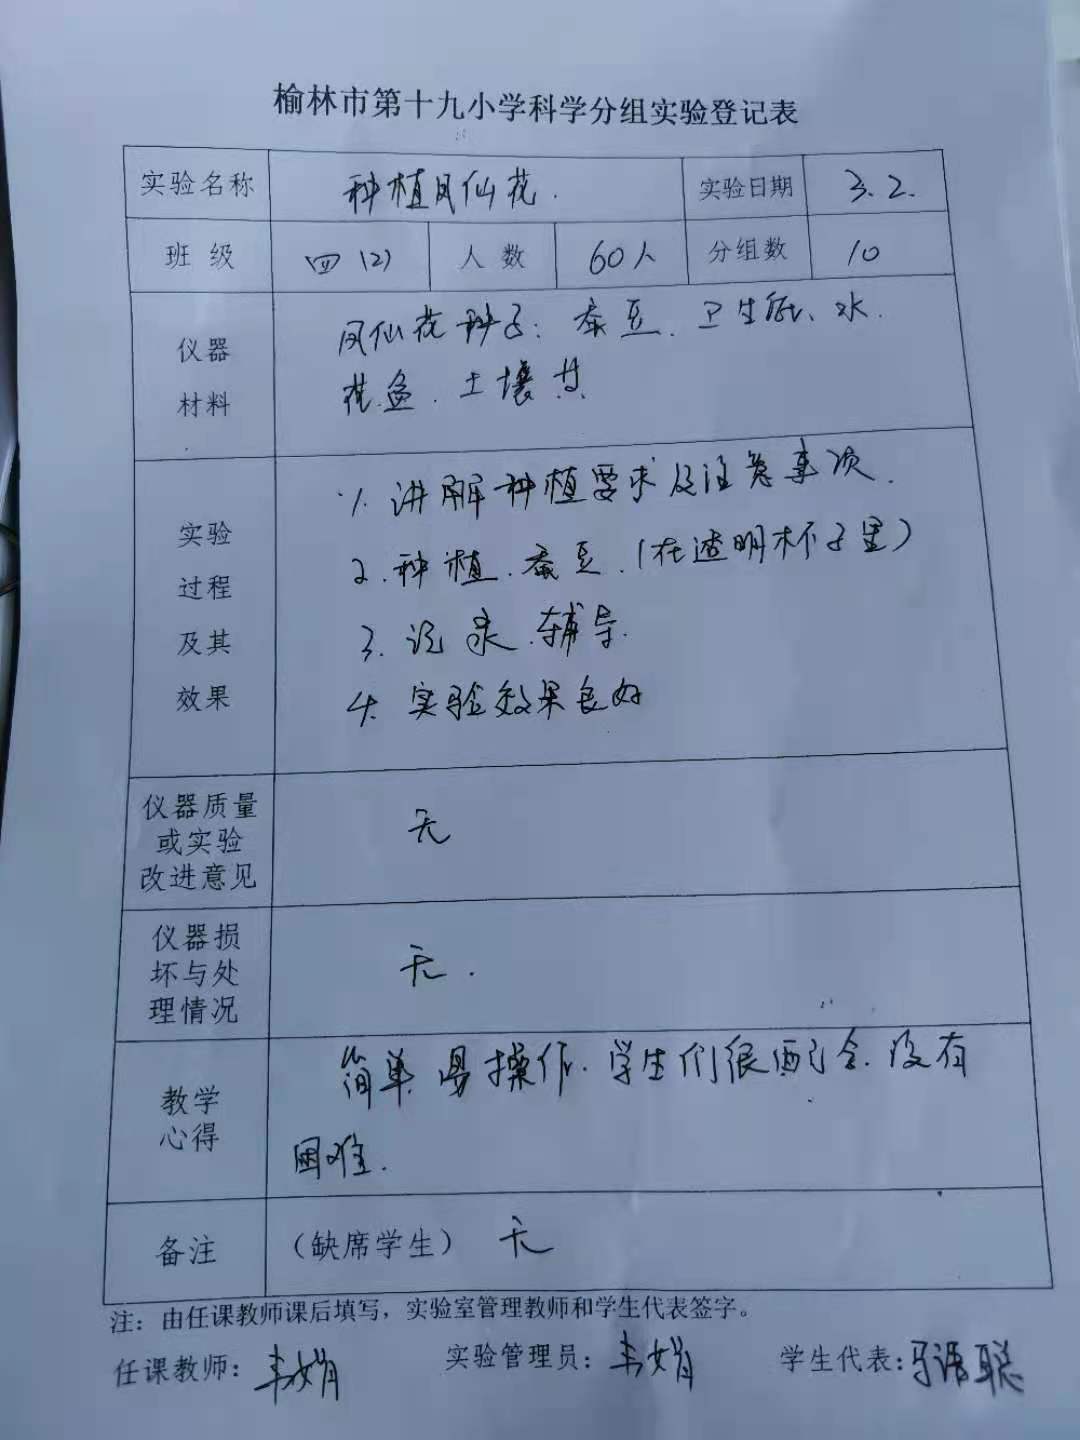 榆林市第十九小学科学分组实验登记表
实验名称 种植凤仙花. 实验日期 3.2.
班 级 四(2) 人 数 60人 分组数 10
仪器 凤仙花种子: 蚕豆. 卫生纸、水.
材料 花盆. 土壤
实验 1. 讲解种植要求及注意事项.
过程 2. 种植.蚕豆.(在透明杯子里)
及其 3. 记录.辅导.
效果 4. 实验效果良好
仪器质量
或实验 无
改进意见
仪器损
坏与处 无.
理情况
教学 简单.易操作.学生们很配合.没有
心得 困难.
备注 (缺席学生) 无
注: 由任课教师课后填写,实验室管理教师和学生代表签字。
任课教师: 实验管理员: 学生代表: